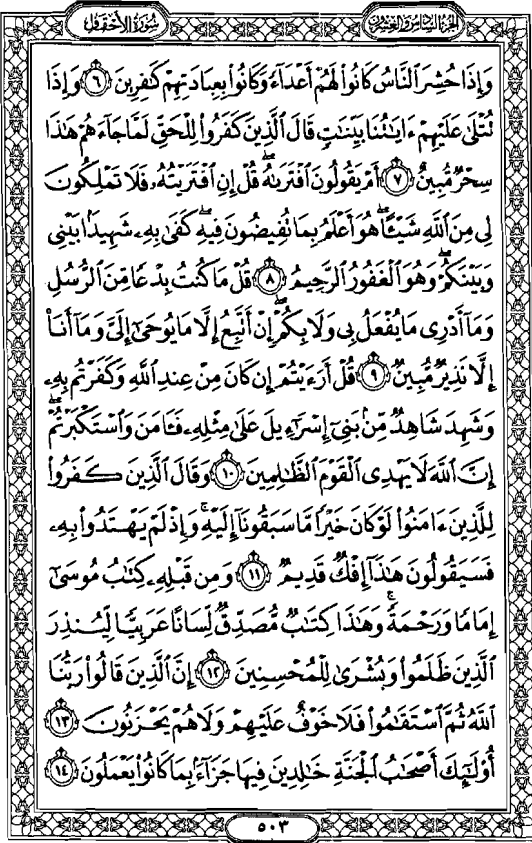 سورة الأحقاف
الجزء السادس والعشرون
وَإِذَا حُشِرَ ٱلنَّاسُ كَانُوا۟ لَهُمْ أَعْدَآءً وَكَانُوا۟ بِعِبَادَتِهِمْ كَٰفِرِينَ ٦ وَإِذَا
تُتْلَىٰ عَلَيْهِمْ ءَايَٰتُنَا بَيِّنَٰتٍ قَالَ ٱلَّذِينَ كَفَرُوا۟ لِلْحَقِّ لَمَّا جَآءَهُمْ هَٰذَا
سِحْرٌ مُّبِينٌ ٧ أَمْ يَقُولُونَ ٱفْتَرَىٰهُ ۖ قُلْ إِنِ ٱفْتَرَيْتُهُۥ فَلَا تَمْلِكُونَ
لِى مِنَ ٱللَّهِ شَيْـًٔا ۖ هُوَ أَعْلَمُ بِمَا تُفِيضُونَ فِيهِ ۖ كَفَىٰ بِهِۦ شَهِيدًۢا بَيْنِى
وَبَيْنَكُمْ ۖ وَهُوَ ٱلْغَفُورُ ٱلرَّحِيمُ ٨ قُلْ مَا كُنتُ بِدْعًا مِّنَ ٱلرُّسُلِ
وَمَآ أَدْرِى مَا يُفْعَلُ بِى وَلَا بِكُمْ ۖ إِنْ أَتَّبِعُ إِلَّا مَا يُوحَىٰٓ إِلَىَّ وَمَآ أَنَا۠
إِلَّا نَذِيرٌ مُّبِينٌ ٩ قُلْ أَرَءَيْتُمْ إِن كَانَ مِنْ عِندِ ٱللَّهِ وَكَفَرْتُم بِهِۦ
وَشَهِدَ شَاهِدٌ مِّنۢ بَنِىٓ إِسْرَٰٓءِيلَ عَلَىٰ مِثْلِهِۦ فَـَٔامَنَ وَٱسْتَكْبَرْتُمْ ۖ
إِنَّ ٱللَّهَ لَا يَهْدِى ٱلْقَوْمَ ٱلظَّٰلِمِينَ ١٠ وَقَالَ ٱلَّذِينَ كَفَرُوا۟
لِلَّذِينَ ءَامَنُوا۟ لَوْ كَانَ خَيْرًا مَّا سَبَقُونَآ إِلَيْهِ ۚ وَإِذْ لَمْ يَهْتَدُوا۟ بِهِۦ
فَسَيَقُولُونَ هَٰذَآ إِفْكٌ قَدِيمٌ ١١ وَمِن قَبْلِهِۦ كِتَٰبُ مُوسَىٰٓ
إِمَامًا وَرَحْمَةً ۚ وَهَٰذَا كِتَٰبٌ مُّصَدِّقٌ لِّسَانًا عَرَبِيًّا لِّيُنذِرَ
ٱلَّذِينَ ظَلَمُوا۟ وَبُشْرَىٰ لِلْمُحْسِنِينَ ١٢ إِنَّ ٱلَّذِينَ قَالُوا۟ رَبُّنَا
ٱللَّهُ ثُمَّ ٱسْتَقَٰمُوا۟ فَلَا خَوْفٌ عَلَيْهِمْ وَلَا هُمْ يَحْزَنُونَ ١٣
أُو۟لَٰٓئِكَ أَصْحَٰبُ ٱلْجَنَّةِ خَٰلِدِينَ فِيهَا جَزَآءًۢ بِمَا كَانُوا۟ يَعْمَلُونَ ١٤
٥٠٣